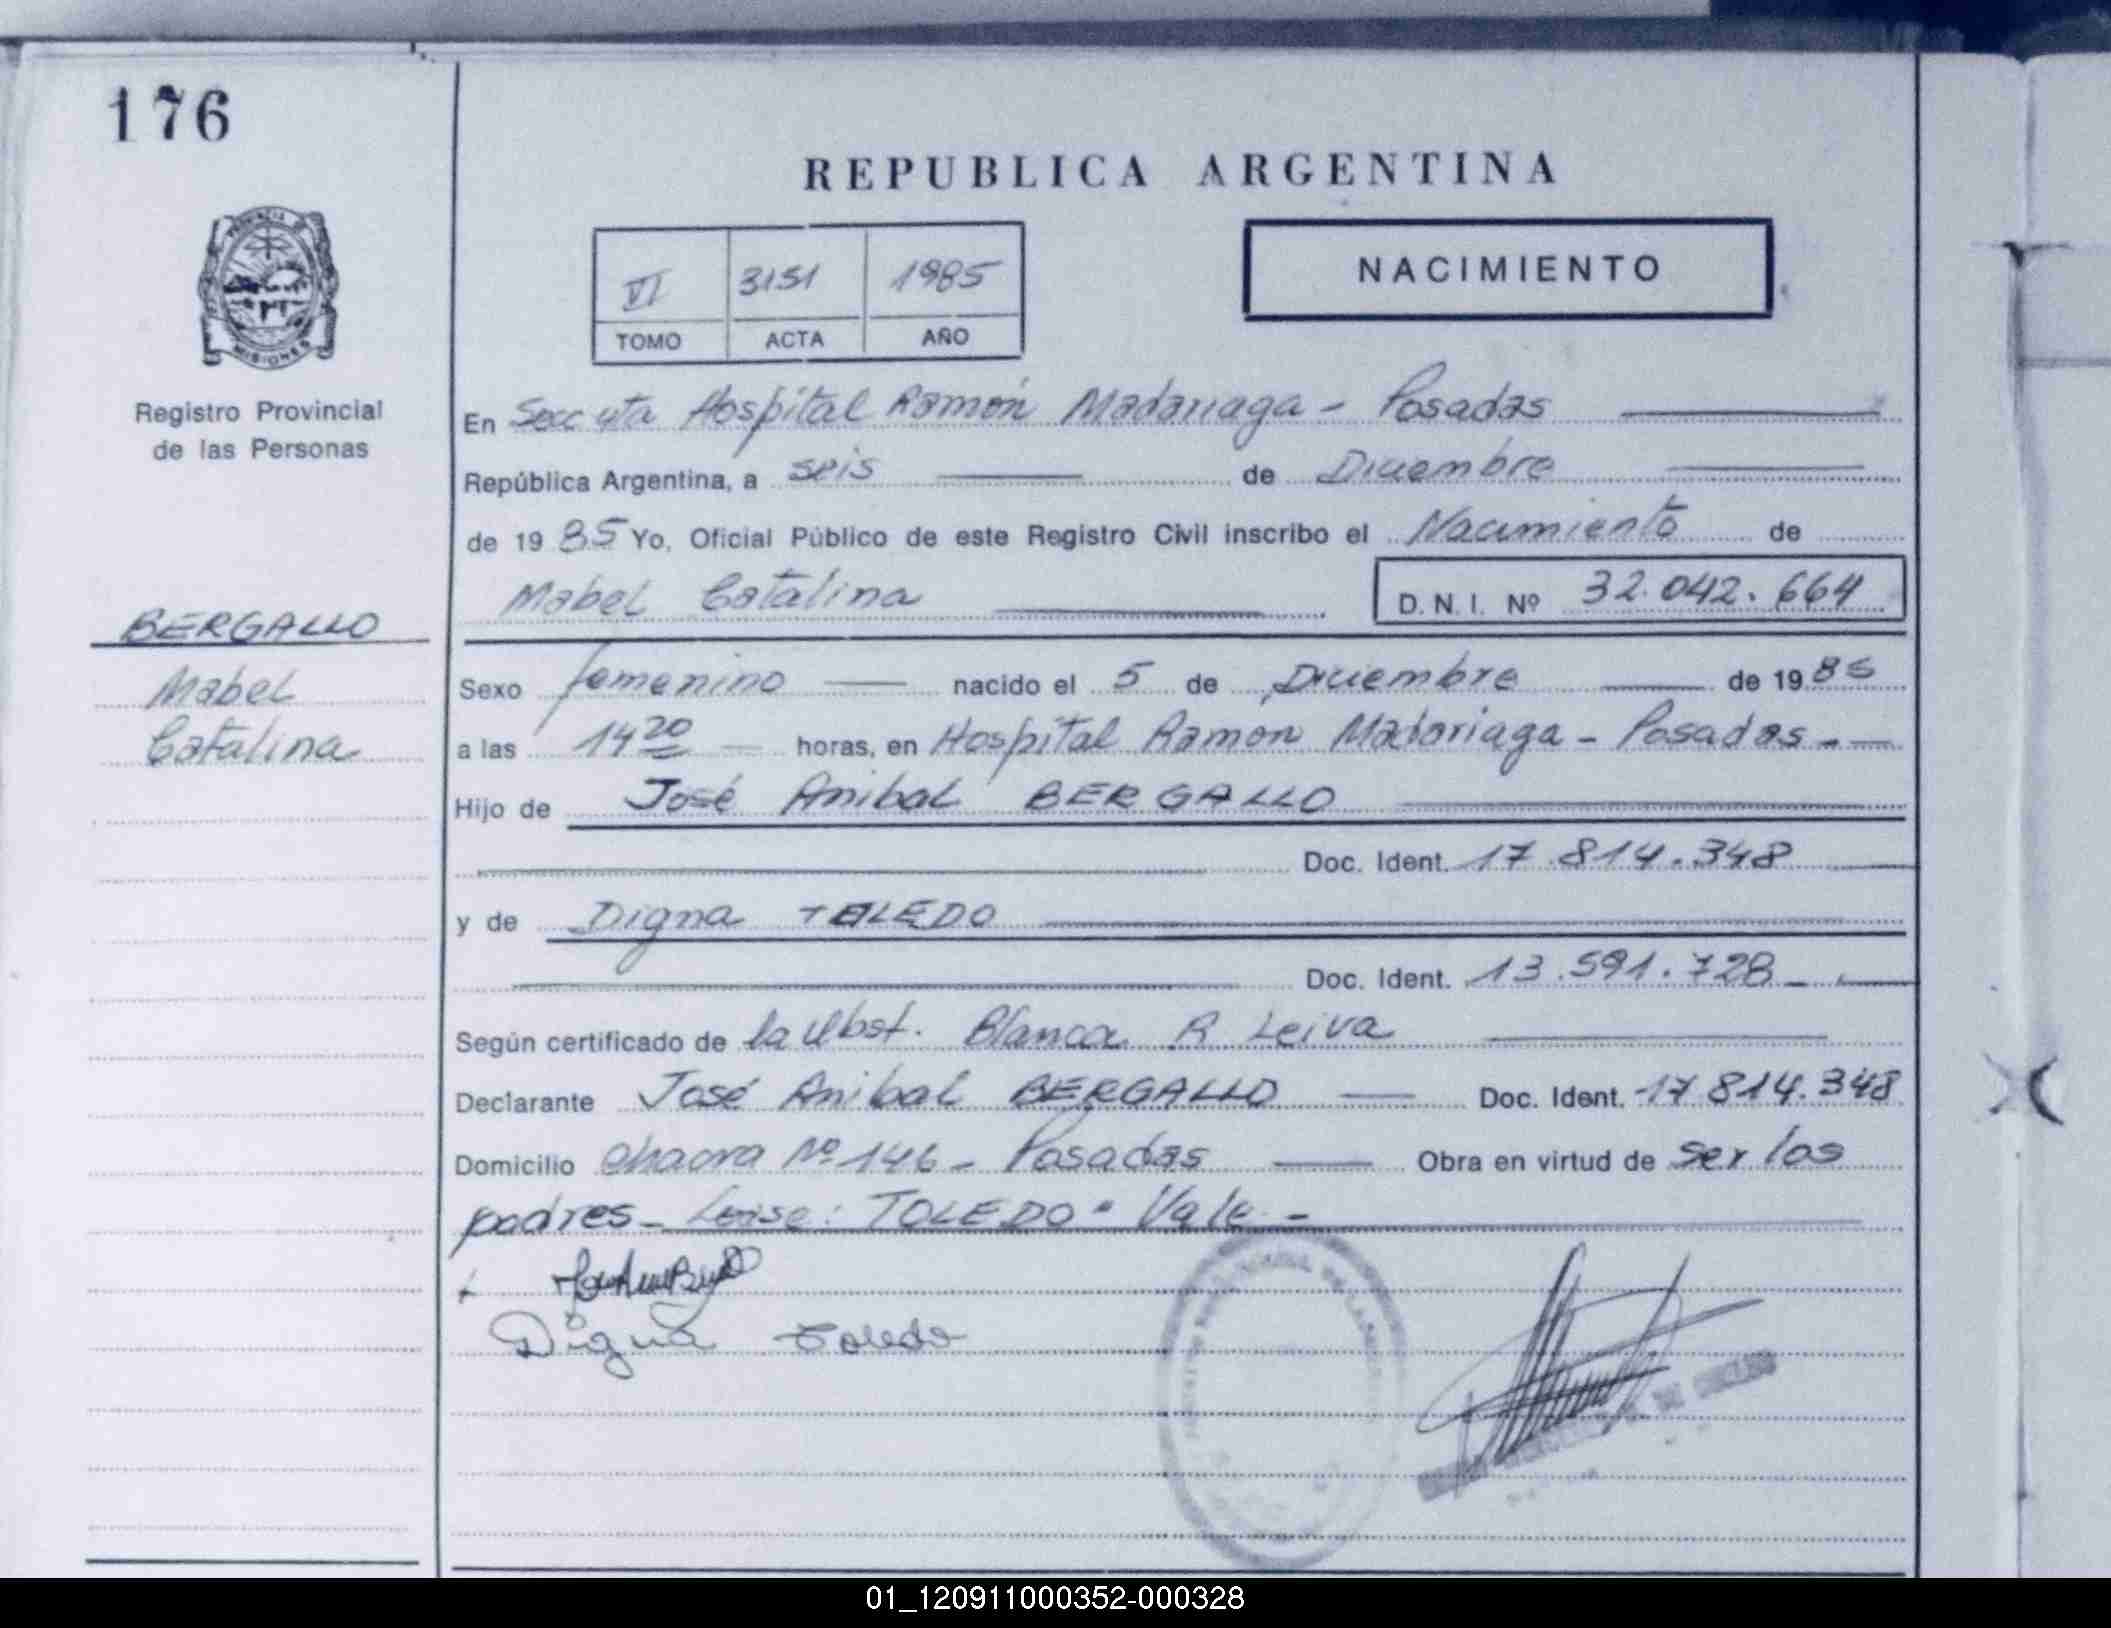 176
REPUBLICA ARGENTINA
VI 3151 1985
TOMO ACTA AÑO
NACIMIENTO
PROVINCIA DE
MISIONES
Registro Provincial
de las Personas
BERGALLO
Mabel
Catalina
En Secc 4ta Hospital Ramón Madariaga - Posadas
República Argentina, a seis de Diciembre
de 1985 Yo, Oficial Público de este Registro Civil inscribo el Nacimiento de
Mabel Catalina D.N.I. Nº 32.042.664
Sexo femenino nacido el 5 de Diciembre de 1985
a las 14 20 horas, en Hospital Ramon Madariaga - Posadas -
Hijo de José Anibal BERGALLO
Doc. Ident. 17.814.348
y de Digna TOLEDO
Doc. Ident. 13.591.728
Según certificado de la Obst. Blanca R Leiva
Declarante José Anibal BERGALLO Doc. Ident. 17 814.348
Domicilio Chacra Nº 146 - Posadas Obra en virtud de ser los
padres - Lease: TOLEDO " Vale -
Digna Toledo
01_120911000352-000328